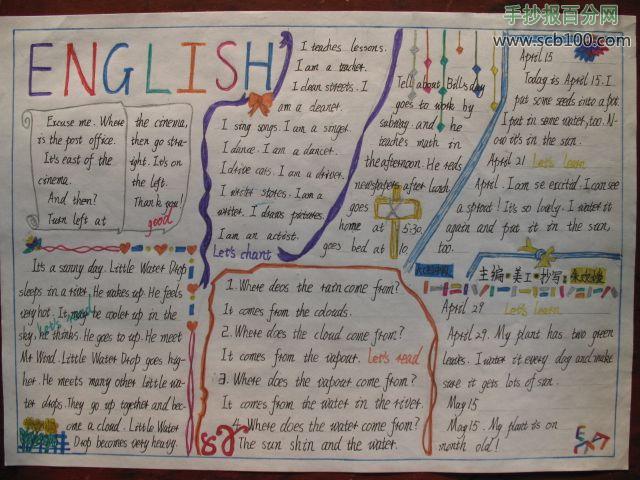 手抄报百分网
www.scb100.com
ENGLISH
Excuse me. Where
is the post office.
It's east of the
cinema.
And then?
Turn left at
the cinema,
then go stra-
ight. It's on
the left.
Thank you!
good
I teaches lessons.
I am a teacher.
I clean streets. I
am a cleaner.
I sing songs. I am a singer.
I dance. I am a dancer.
I drive cars. I am a driver.
I write stores. I am a
writer. I draws pictures.
I am an artist.
Let's chant
Tell about Bill's day
goes to work by
subway. and he
teaches math in
the afternoon. He reds
newspapers after lunch.
goes
home at 5:30.
goes bed at 10.
April 15
Today is April 15. I
put some seeds into a pot.
I put in some water, too. N-
ow it's in the sun.
April 21 Let's learn
April. I am se excited. I can see
a sprout! It's so lovely. I water it
again and put it in the sun,
too.
主编·美工·抄写:
April 29 Let's learn
April 29. My plant has two green
leaves. I water it every day and make
sure it gets lots of sun.
May 15
May 15. My plant is on
month old!
It's a sunny day. Little Water Drop
sleeps in a river, He wakes up. He feels
very hot. It may be cooler up in the
sky, he thinks. He goes to up. He meet
Mr Wind. Little Water Drop goes hig-
her. He meets many other Little wa-
ter drops. They go up together and bec-
ome a cloud. Little Water
Drop becomes very heavy.
1. Where deos the rain come from?
It comes from the clouds.
2. Where does the cloud come from?
It comes from the vapour. Let's read
3. Where does the vapour come from?
It comes from the water in the river.
4. Where does the water come from?
The sun shin and the water.